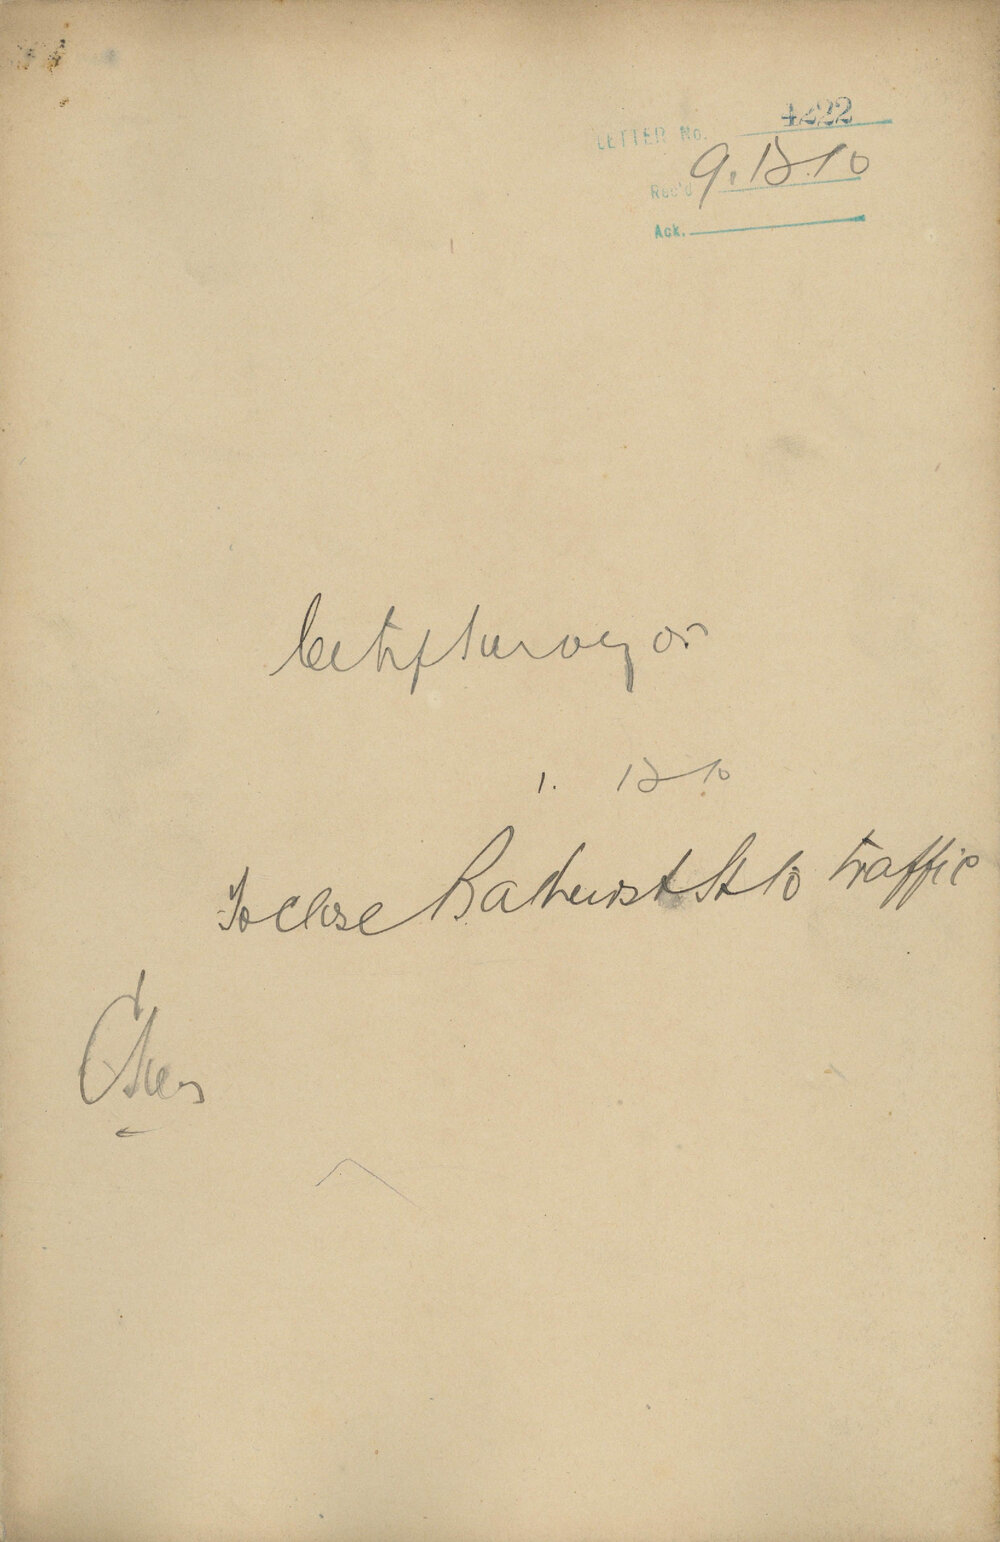 LETTER No. 4222
Rec'd 9.12.10
Ack.
City Surveyor
1. 12 10
To close Bathurst St to traffic